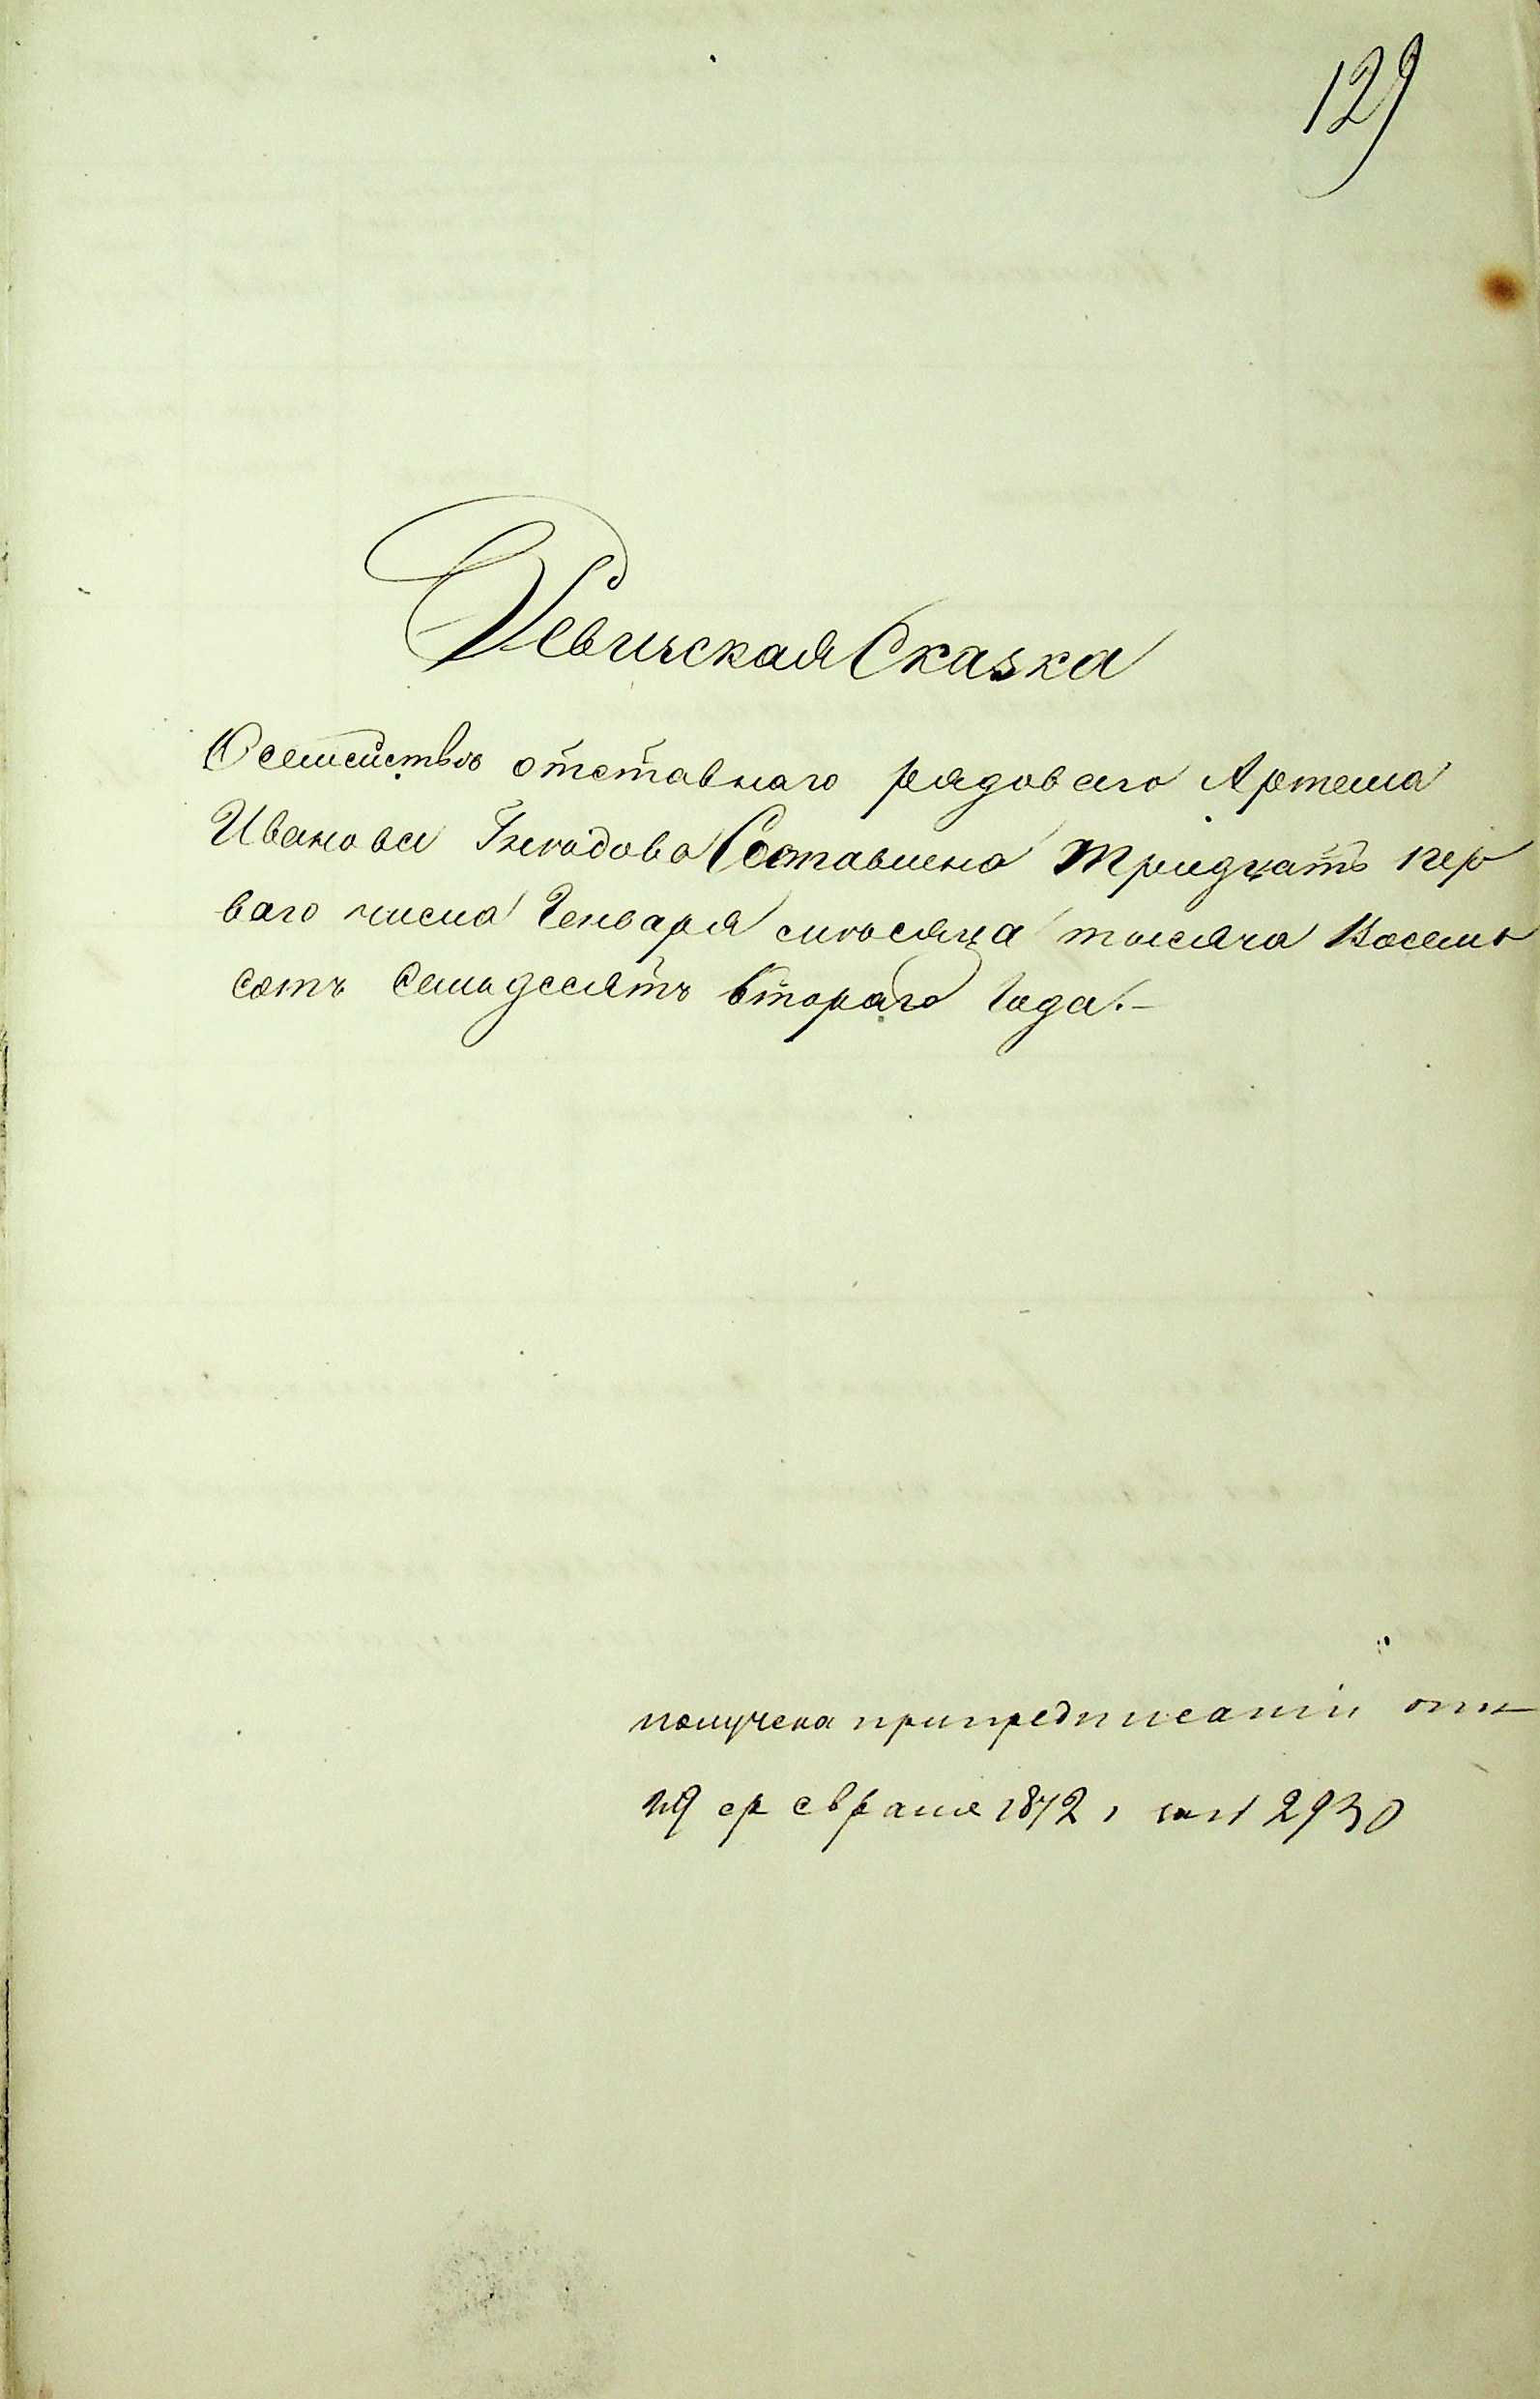 129
Ревиская Сказка
О семействѣ отставнаго рядоваго Артема
Иванова Гнѣдова Составлена тридцать пер
ваго числа Генваря мѣсяца тысяча Восемь
сотъ семьдесятъ втораго Года.-
получена при предписаніи отъ
29 февраля 1872 г за № 2930